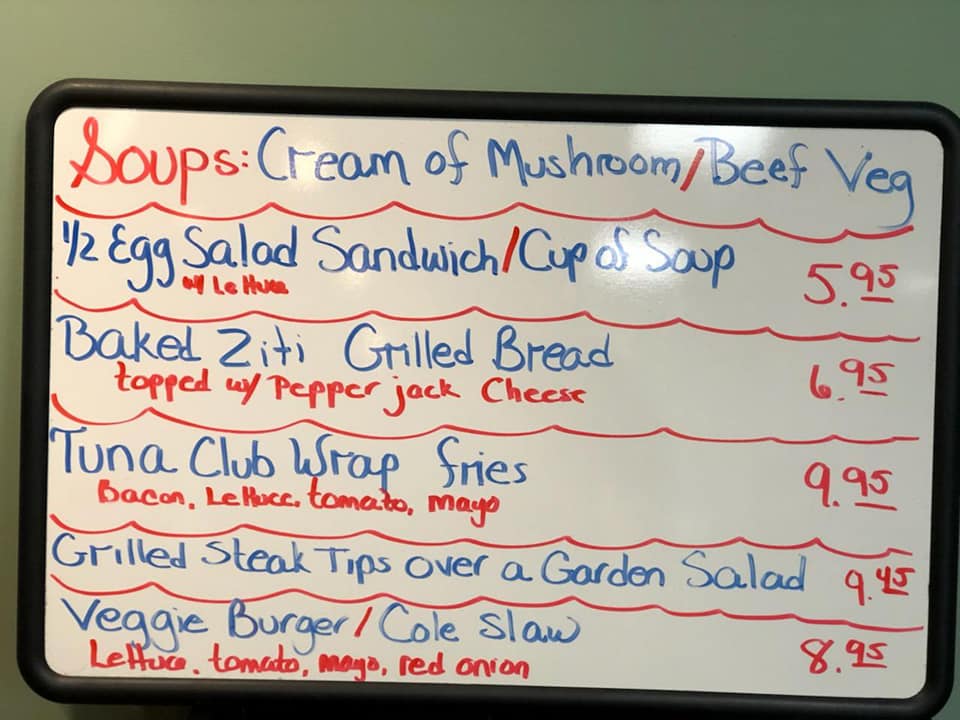 Soups: Cream of Mushroom/Beef Veg
1/2 Egg Salad Sandwich/Cup of Soup 5.95
w/ Lettuce
Baked Ziti Grilled Bread 6.95
topped w/ Pepper jack Cheese
Tuna Club Wrap fries 9.95
Bacon, Lettuce, tomato, mayo
Grilled Steak Tips over a Garden Salad 9.45
Veggie Burger/Cole Slaw 8.95
Lettuce, tomato, mayo, red onion